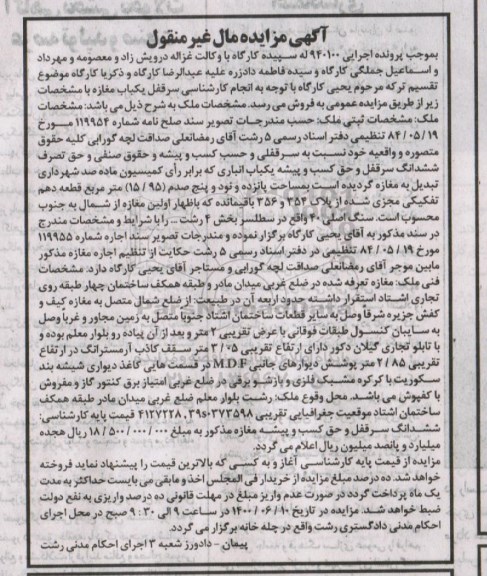 آگهی مزایده مال غیر منقول
بموجب پرونده اجرایی ۹۴۰۱۰۰ له سپیده کارگاه با وکالت غزاله درویش زاد و معصومه و مهرداد
و اسماعیل جملگی کارگاه و سیده فاطمه دادزره علیه عبدالرضا کارگاه و ذکریا کارگاه موضوع
تقسیم ترکه مرحوم یحیی کارگاه با توجه به انجام کارشناسی سرقفل یکباب مغازه با مشخصات
زیر از طریق مزایده عمومی به فروش می رسد. مشخصات ملک به شرح ذیل می باشد: مشخصات
ملک: مشخصات ثبتی ملک: حسب مندرجات تصویر سند صلح نامه شماره ۱۱۹۹۵۴ مورخ
۱۹ / ۰۵ / ۸۴ تنظیمی دفتر اسناد رسمی ۵ رشت آقای رمضانعلی صداقت لچه گورابی کلیه حقوق
متصوره و واقعیه خود نسبت به سرقفلی و حسب کسب و پیشه و حقوق صنفی و حق تصرف
ششدانگ سرقفل و حق کسب و پیشه یکباب انباری که برابر رأی کمیسیون ماده صد شهرداری
تبدیل به مغازه گردیده است بمساحت پانزده و نود و پنج صدم (۹۵ / ۱۵) متر مربع قطعه دهم
تفکیکی مجزی شده از پلاک ۳۵۴ و ۳۵۶ باقیمانده که باظهار اولین مغازه از شمال به جنوب
محسوب است. سنگ اصلی ۴۰ واقع در سطلسر بخش ۴ رشت ... را با شرایط و مشخصات مندرج
در سند مذکور به آقای یحیی کارگاه برگزار نموده و مندرجات تصویر سند اجاره شماره ۱۱۹۹۵۵
مورخ ۱۹ / ۰۵ / ۸۴ تنظیمی در دفتر اسناد رسمی ۵ رشت حکایت از تنظیم اجاره مغازه مذکور
مابین موجر آقای رمضانعلی صداقت لچه گورابی و مستاجر آقای یحیی کارگاه دارد. مشخصات
فنی ملک: مغازه تعرفه شده در ضلع غربی میدان مادر و طبقه همکف ساختمان چهار طبقه روی
تجاری اشتاد استقرار داشته حدود اربعه آن در طبیعت: از ضلع شمال متصل به مغازه کیف و
کفش جزیره شرقاً وصل به سایر قطعات ساختمان اشتاد جنوبا متصل به زمین مجاور و غرباً وصل
به سایبان کنسول طبقات فوقانی با عرض تقریبی ۲ متر و بعد از آن پیاده رو بلوار معلم بوده و
با تابلو تجاری گیلان دکور دارای ارتفاع تقریبی ۰۵ / ۳ متر سقف کاذب آرمسترانگ در ارتفاع
تقریبی ۸۵ / ۲ متر پوشش دیوارهای جانبی MDF در قسمت هایی کاغذ دیواری شیشه بند
سکوریت با کرکره مشبک فلزی و بازشو برقی در ضلع غربی امتیاز برق کنتور گاز و مفروش
با کفپوش می باشد. محل وقوع ملک: رشت بلوار معلم ضلع غربی میدان مادر طبقه همکف
ساختمان اشتاد موقعیت جغرافیایی تقریبی ۳۷۳۵۹۸، ۳۹s ۴۱۲۷۲۲۸ قیمت پایه کارشناسی:
ششدانگ سرقفل و حق کسب و پیشه مغازه مذکور به مبلغ ۰۰۰ / ۰۰۰ / ۵۰۰ / ۱۸ ریال هجده
میلیارد و پانصد میلیون ریال اعلام می گردد.
مزایده از قیمت پایه کارشناسی آغاز و به کسی که بالاترین قیمت را پیشنهاد نماید فروخته
خواهد شد. ده درصد مبلغ مزایده از خریدار فی المجلس اخذ و مابقی می بایست حداکثر به مدت
یک ماه پرداخت گردد در صورت عدم واریز مبلغ در مهلت قانونی ده درصد واریزی به نفع دولت
ضبط خواهد شد. مزایده در تاریخ ۱۰ / ۰۶ / ۱۴۰۰ در ساعت ۹ الی ۳۰ : ۹ صبح در محل اجرای
احکام مدنی دادگستری رشت واقع در چله خانه برگزار می گردد.
پیمان - دادورز شعبه ۳ اجرای احکام مدنی رشت